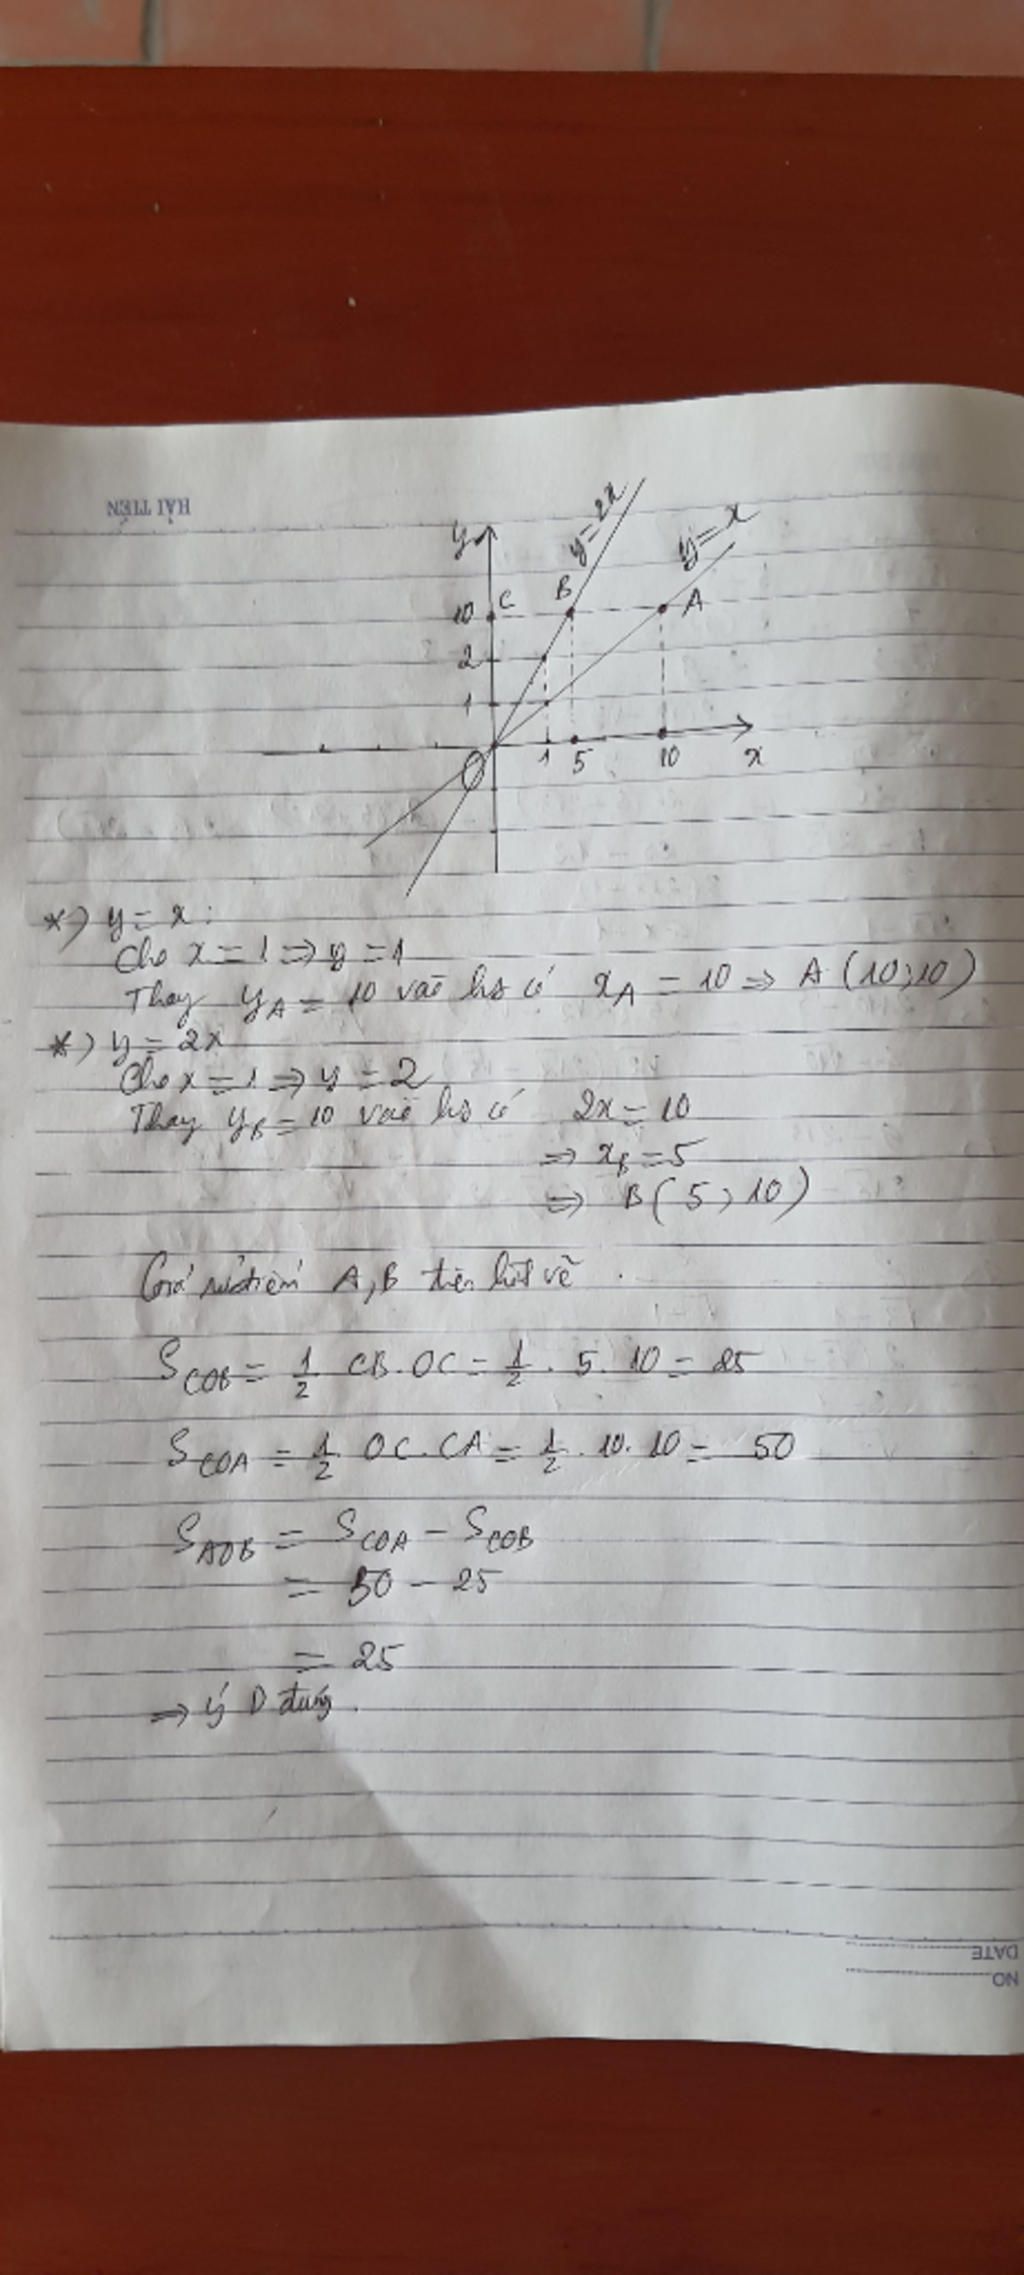 HẢI TIẾN
y
y=2x
y=x
10 C B A
2
1
O 1 5 10 x
*) y = x :
Cho x = 1 => y = 1
Thay y_A = 10 vào hs có x_A = 10 => A (10;10)
*) y = 2x
Cho x = 1 => y = 2
Thay y_B = 10 vào hs có 2x = 10
=> x_B = 5
=> B( 5 ; 10)
A, B trên hình vẽ
S_COB = 1/2 CB.OC = 1/2 . 5. 10 = 25
S_COA = 1/2 OC.CA = 1/2 . 10. 10 = 50
S_AOB = S_COA - S_COB
= 50 - 25
= 25
=> ý D đúng.
DATE
NO